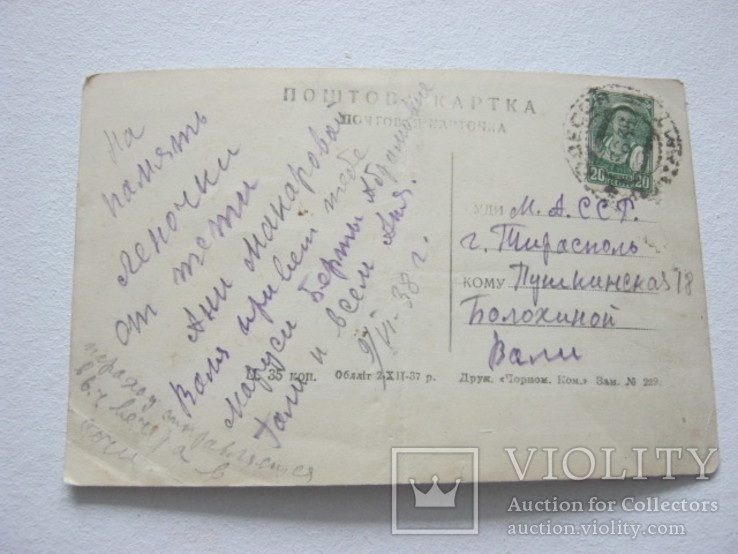 ПОШТОВА КАРТКА
ПОЧТОВАЯ КАРТОЧКА
На
память
Леночки
от тети
Ани Макаровой
Валя привет тебе
Маруси Берты Абрамовне
Гали и всем Аня.
9/VI-38 г.
пароход отправляется
в вечера в
Сочи
20 20
КУДИ М.А.ССР.
г. Тирасполь
КОМУ Пушкинская 18
Болохиной
Вали
Ц. 35 коп. Обляіт 2-XII-37 р. Друк. «Чорпом. Ком.» Зам. № 229.
VIOLITY
Auction for Collectors
auction.violity.com